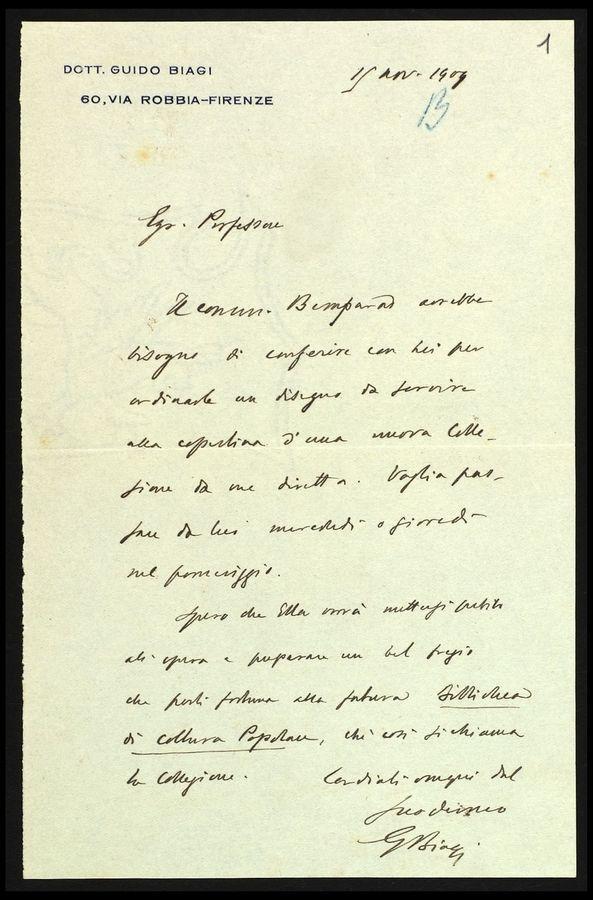 1
DOTT. GUIDO BIAGI
60, VIA ROBBIA-FIRENZE
15 nov. 1909
B
Egr. Professore
Il comm. Bemporad avrebbe
bisogno di conferire con Lei per
ordinarle un disegno da servire
alla copertina d'una nuova Colle-
zione da me diretta. Voglia pas-
sare da lui mercoledì o giovedì
nel pomeriggio.
Spero che Ella vorrà mettersi subito
all'opera e preparare un bel fregio
che porti fortuna alla futura Biblioteca
di coltura Popolare, chè così si chiama
la Collezione. Cordiali omaggi dal
Suo devmo
GBiagi